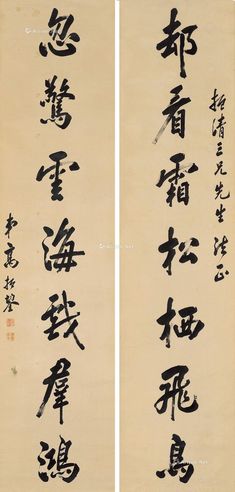 却看霜松栖飛鳥
清三兄先生法正
忽驚雲海戲羣鴻
弟高